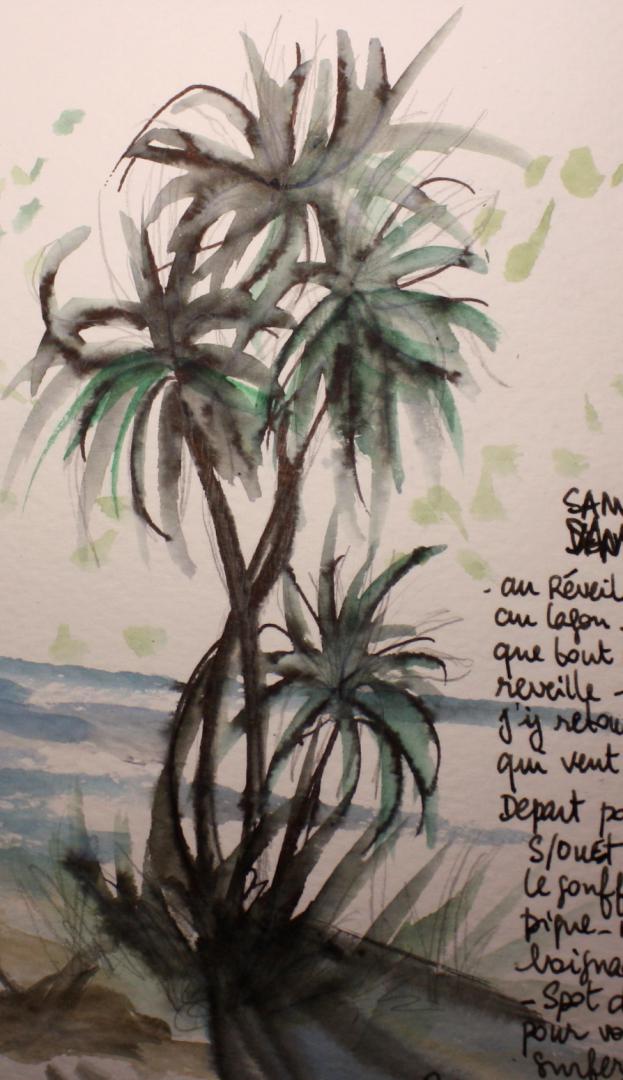 SAM
- au Réveil
au lagon
que bout
reveille -
j'y retou
qui vent
Depart po
S/OUET
le gouff
pique-
baigna
- Spot d
pour vo
surfer